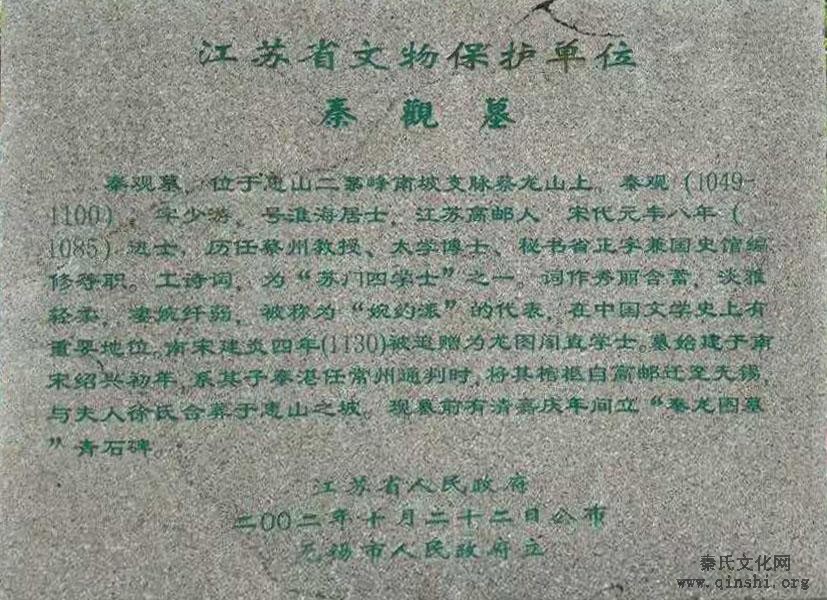 江苏省文物保护单位
秦觀墓
秦观墓，位于惠山二茅峰南坡支脉蔡龙山上。秦观（1049-
1100），字少游，号淮海居士，江苏高邮人。宋代元丰八年（
1085）进士，历任蔡州教授、太学博士、秘书省正字兼国史馆编
修等职。工诗词，为“苏门四学士”之一。词作秀丽含蓄，淡雅
轻柔，凄婉纤弱，被称为“婉约派”的代表，在中国文学史上有
重要地位。南宋建炎四年(1130)被追赠为龙图阁直学士。墓始建于南
宋绍兴初年，系其子秦湛任常州通判时，将其棺柩自高邮迁至无锡，
与夫人徐氏合葬于惠山之坡。现墓前有清嘉庆年间立“秦龙图墓
”青石碑。
江苏省人民政府
二〇〇二年十月二十二日公布
无锡市人民政府立
秦氏文化网
www.qinshi.org